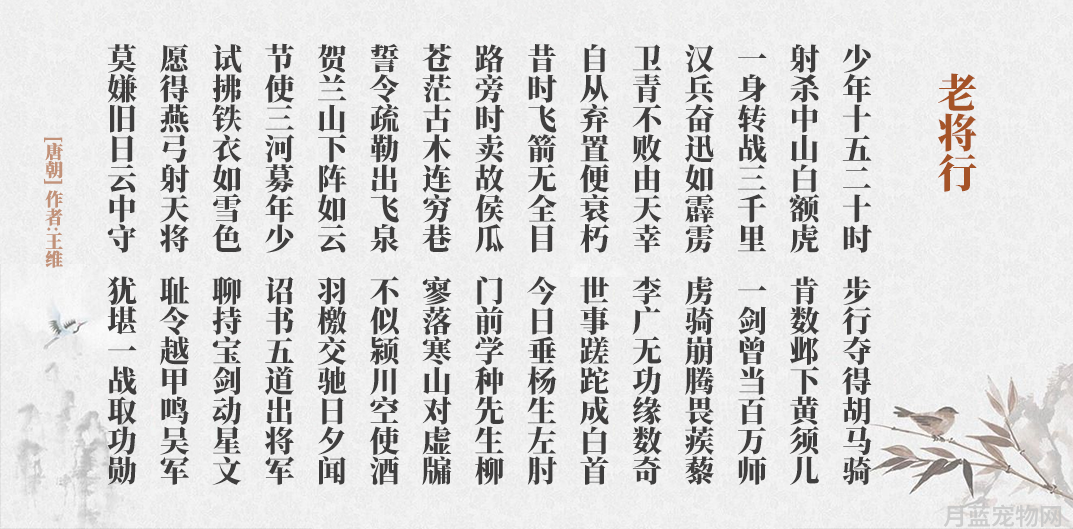 老将行
少年十五二十时 步行夺得胡马骑
射杀中山白额虎 肯数邺下黄须儿
一身转战三千里 一剑曾当百万师
汉兵奋迅如霹雳 虏骑崩腾畏蒺藜
卫青不败由天幸 李广无功缘数奇
自从弃置便衰朽 世事蹉跎成白首
昔时飞箭无全目 今日垂杨生左肘
路旁时卖故侯瓜 门前学种先生柳
苍茫古木连穷巷 寥落寒山对虚牖
誓令疏勒出飞泉 不似颍川空使酒
贺兰山下阵如云 羽檄交驰日夕闻
节使三河募年少 诏书五道出将军
试拂铁衣如雪色 聊持宝剑动星文
愿得燕弓射天将 耻令越甲鸣吴军
莫嫌旧日云中守 犹堪一战取功勋
[唐朝] 作者:王维
月蓝宠物网